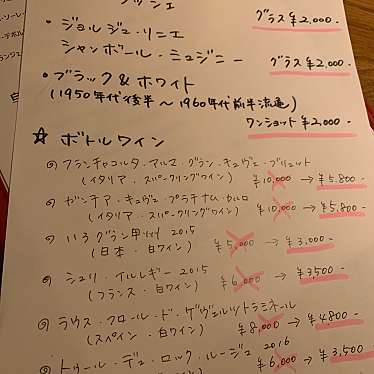 ・ジョルジュ・リニエ
シャンボール・ミュジニー
グラス ¥2,000-
グラス ¥2,000-
・ブラック&ホワイト
(1950年代後半〜1960年代前半流通)
ワンショット ¥2,000-
☆ ボトルワイン
フランチャコルタ・アルマ・グラン・キュヴェ・ブリュット
(イタリア・スパークリングワイン) ¥10,000 → ¥5,800-
ガンチア・キュヴェ・プラチナム・
(イタリア・スパークリングワイン) ¥10,000 → ¥5,800-
いろグラン甲州 2015
(日本・白ワイン) ¥5,000 → ¥3,000-
2015
(フランス・白ワイン) ¥6,000 → ¥3,500-
ラウス・クロール・ド・ゲヴュルツトラミネール
(スペイン・白ワイン) ¥8,000 → ¥4,800-
トゥール・デュ・ロック・ルージュ 2016
¥6,000 → ¥3,500